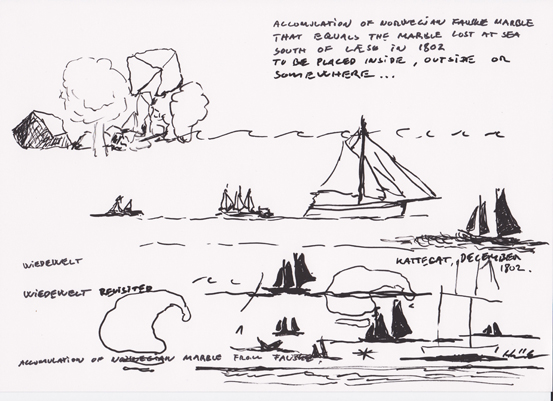 ACCUMULATION OF NORWEGIAN FAUSKE MARBLE
THAT EQUALS THE MARBLE LOST AT SEA
SOUTH OF LÆSØ IN 1802
TO BE PLACED INSIDE, OUTSIDE OR
SOMEWHERE...
WIEDEWELT
KATTEGAT, DECEMBER
1802.
WIEDEWELT REVISITED
ACCUMULATION OF NORWEGIAN MARBLE FROM FAUSKE